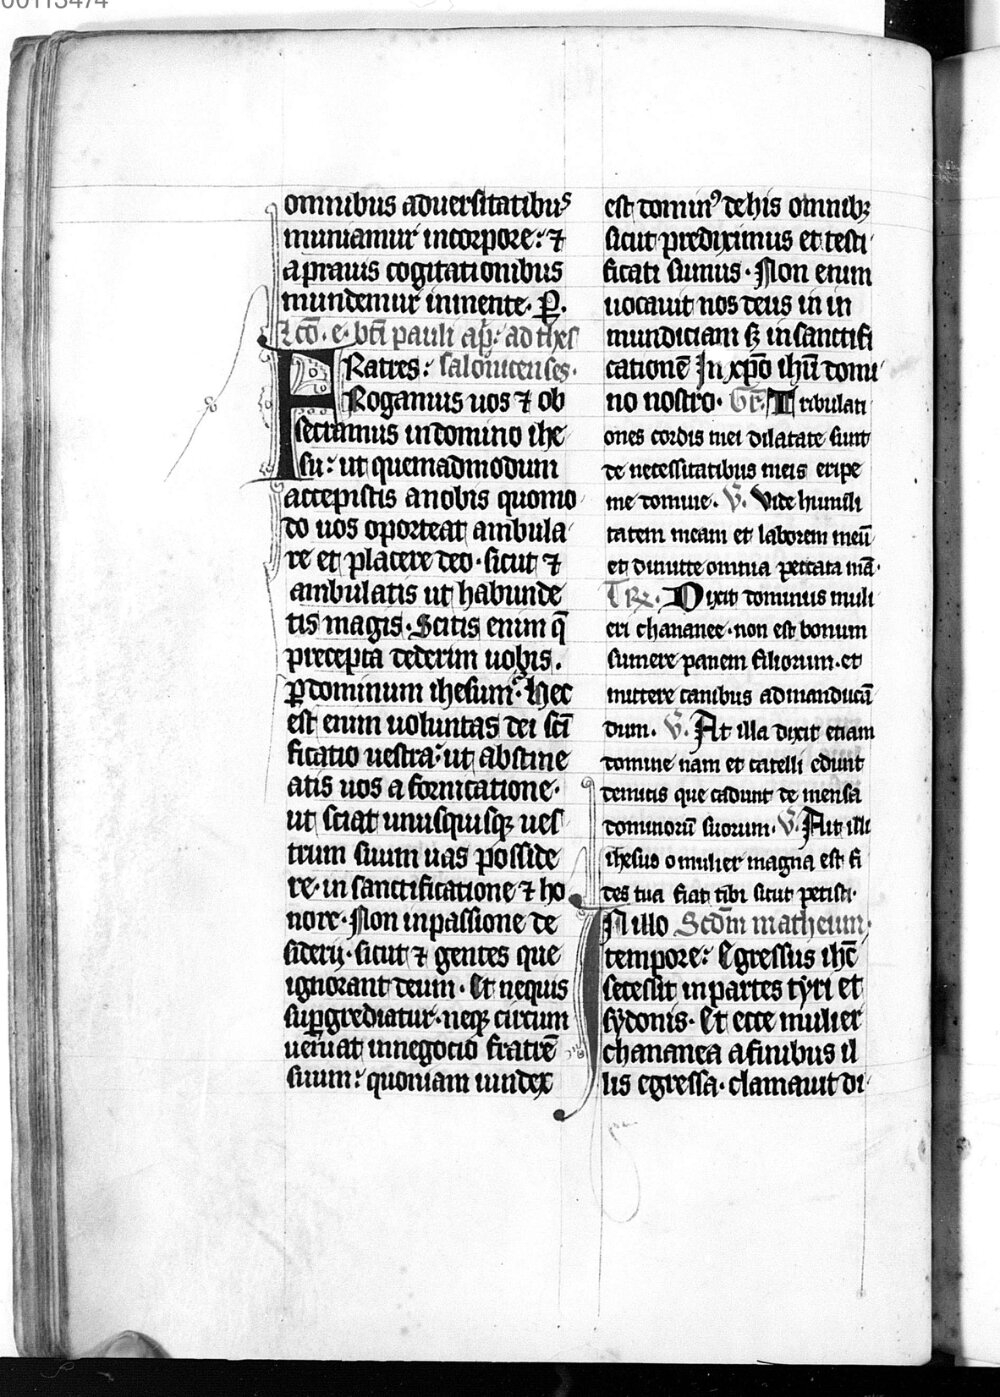 00113474
omnibus aduersitatibus
muniamur incorpore: ⁊
a prauis cogitationibus
mundemur inmente. P̲.
Lc̄o. e. bt̄i pauli ap̄. ad thes
FRatres: salonicenses.
Rogamus uos ⁊ ob
secramus indomino ihe
su: ut quemadmodum
accepistis anobis quomo
do uos oporteat ambula
re et placere deo. sicut ⁊
ambulatis ut habunde
tis magis. Scitis enim q̄
precepta dederim uobis.
ꝑ dominum ihesum. Hec
est enim uoluntas dei sc̄i
ficatio uestra: ut abstine
atis uos a fornicatione.
ut sciat unusquisqꝫ ues
trum suum uas posside
re. in sanctificatione ⁊ ho
nore. Non inpassione de
siderij. sicut ⁊ gentes que
ignorant deum. Et nequis
suꝑgrediatur. neqꝫ circum
ueniat innegocio fratrē
suum: quoniam iudex
est dominꝰ dehis omnibꝫ
sicut prediximus et testi
ficati sumus. Non enim
uocauit nos deus in in
mundiciam sꝫ insanctifi
cationē In xp̄o ihū domi
no nostro. Gr̄. Tribulati
ones cordis mei dilatate sunt
de necessitatibus meis eripe
me domine. V̄. Vide humili
tatem meam et laborem meū
et dimitte omnia peccata mā.
TR. Dixit dominus muli
eri chananee. non est bonum
sumere panem filiorum. et
mittere canibus admanducā
dum. V̄. At illa dixit etiam
domine nam et catelli edunt
demicis que cadunt de mensa
dominorū suorum. V̄. Ait illi
ihesus o mulier magna est fi
des tua fiat tibi sicut petisti.
IN illo Scd̄m matheum.
tempore: Egressus ihc̄
secessit inpartes tyri et
sydonis. Et ecce mulier
chananea afinibus il
lis egressa. clamauit di